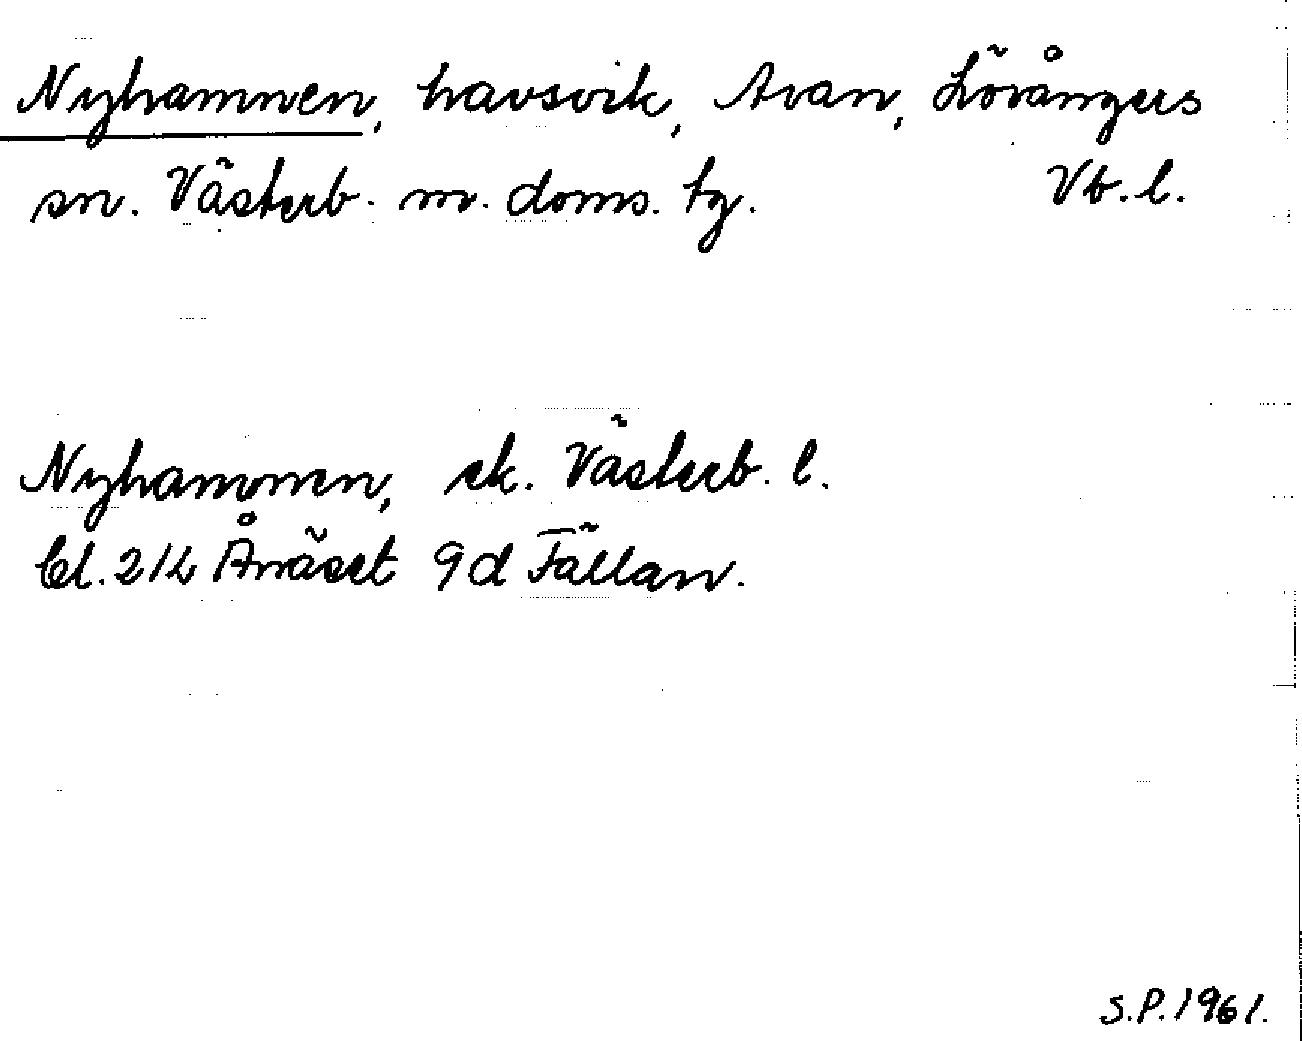 Nyhamnen, havsvik, Avan, Lövångers
sn. Västerb. m. doms. tg. Vb. l.
Nyhamnen, ek. Västerb. l.
bl. 214 Ånäset 9d Fällan.
S.P. 1961.